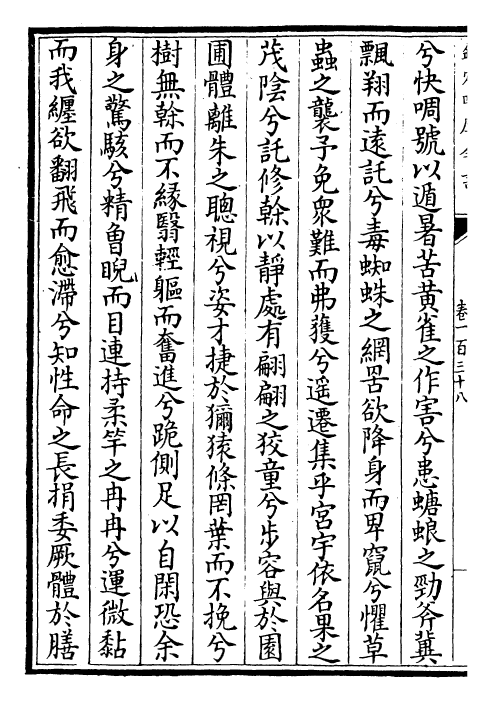 欽定四庫全書
卷一百三十八
兮快啁號以遁暑苦黄雀之作害兮患螗蜋之勁斧冀
飄翔而遠託兮毒蜘蛛之網罟欲降身而卑竄兮懼草
蟲之襲予免衆難而弗獲兮遥遷集乎宮宇依名果之
茂陰兮託修榦以靜處有翩翩之狡童兮步容與於園
圃體離朱之聰視兮姿才捷於獮猿條罔葉而不挽兮
樹無榦而不緣翳輕軀而奮進兮跪側足以自閑恐余
身之驚駭兮精曾睨而目連持柔竿之冉冉兮運微黏
而我纏欲翻飛而愈滯兮知性命之長捐委厥體於膳